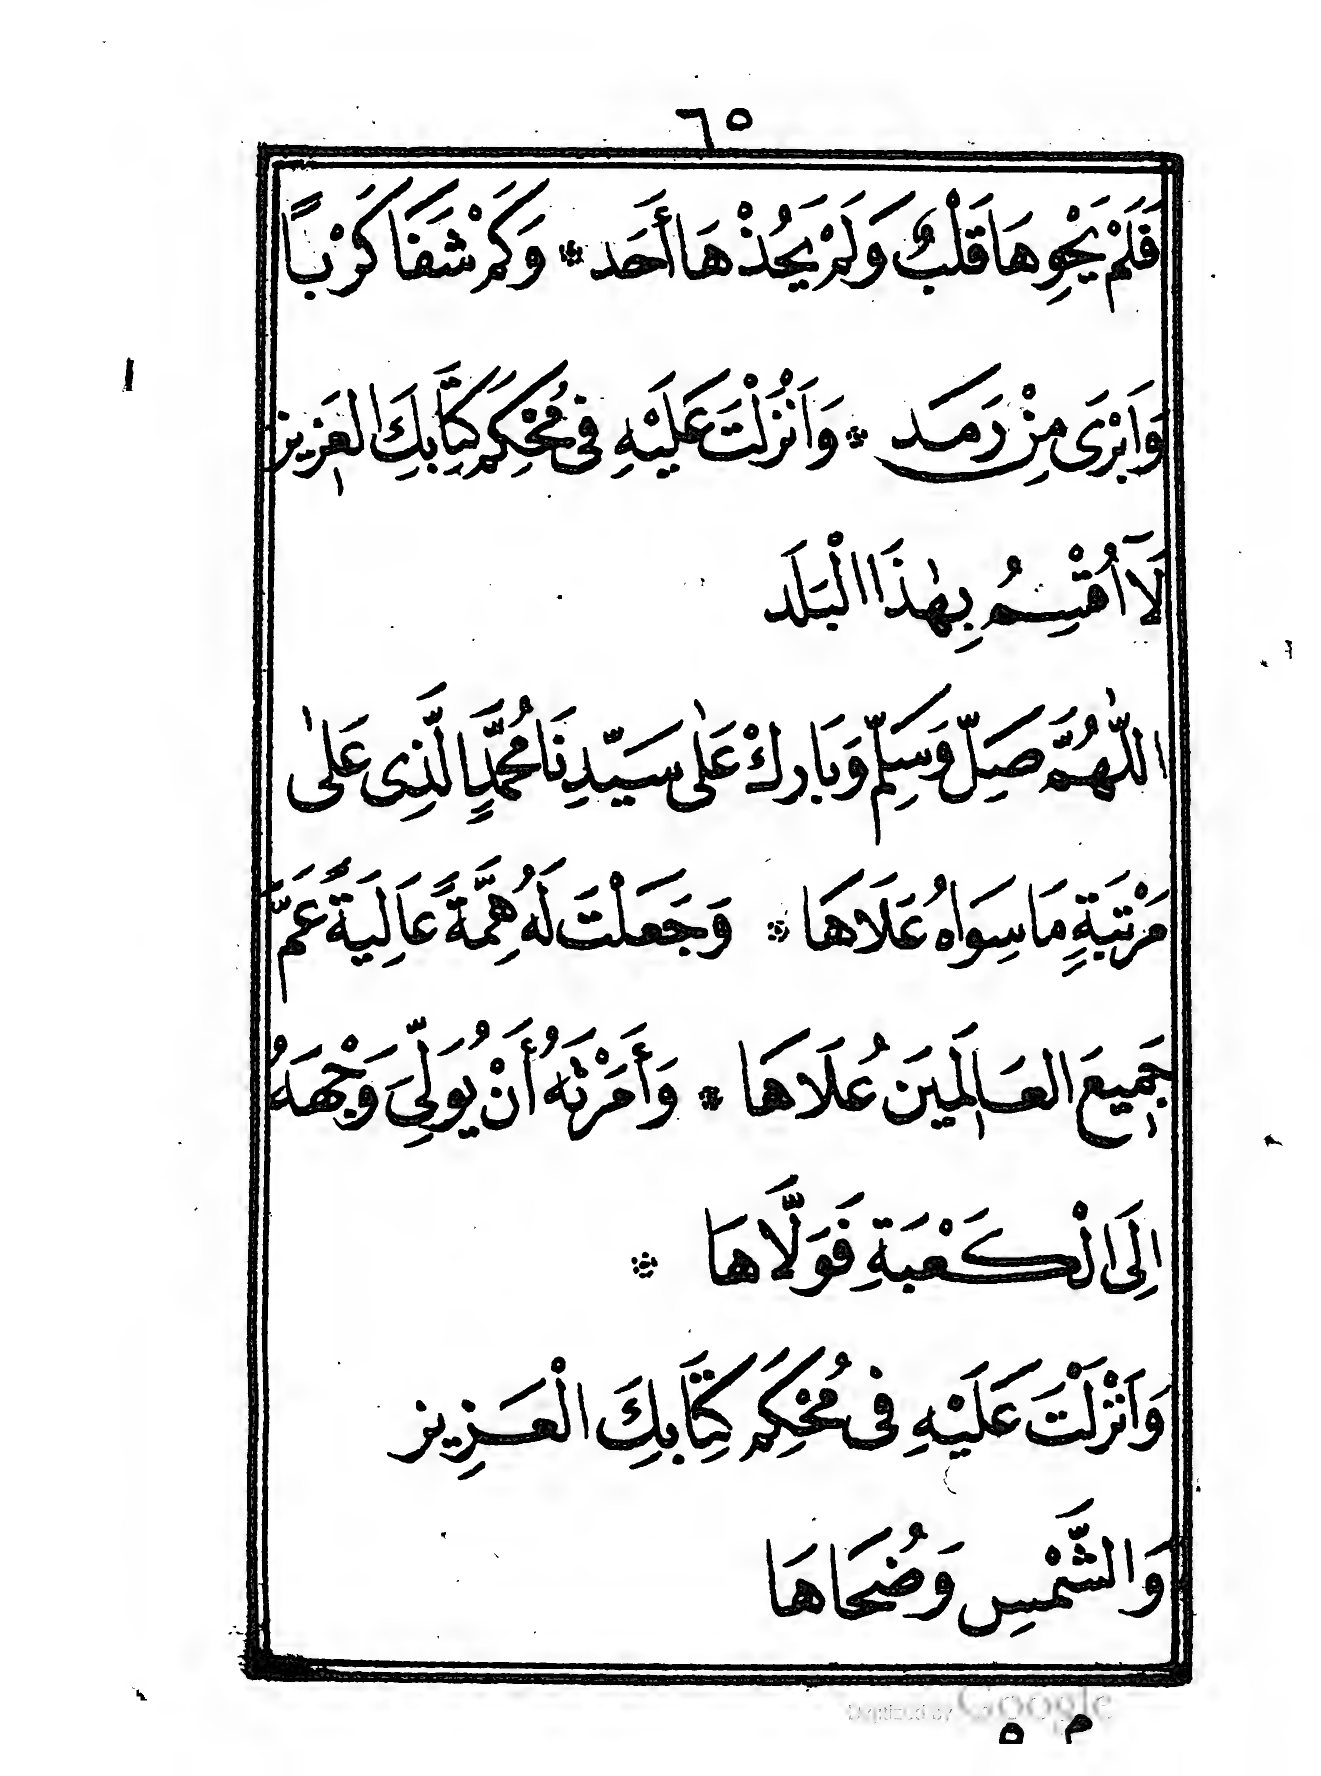 ٦٥
فَلَمْ يَحْوِهَا قَلْبٌ وَلَمْ يَحُذْهَا أَحَد * وَكَمْ شَفَا كَرْبًا
وَاَبْرَى مِنْ رَمَد * وَاَنْزَلْتَ عَلَيْهِ فِى مُحْكِمِ كِتَابِكَ العَزِيز
لَآ اُقْسِمُ بِهٰذَا الْبَلَد
اللّٰهُمَّ صَلِّ وَسَلِّمْ وَبَارِكْ عَلٰى سَيِّدِنَا مُحَمَّدٍ الَّذِى عَلٰى
مَرْتَبَةٍ مَا سِوَاهُ عَلَاهَا * وَجَعَلْتَ لَهُ هِمَّةً عَالِيَةً عَمَّ
جَمِيعَ العَالَمِينَ عُلَاهَا * وَأَمَرْتَهُ أَنْ يُوَلِّىَ وَجْهَهُ
اِلَى الْكَعْبَةِ فَوَلَّاهَا *
وَاَنْزَلْتَ عَلَيْهِ فِى مُحْكِمِ كِتَابِكَ الْعَزِيز
وَالشَّمْسِ وَضُحَاهَا
Digitized by Google
م ٥